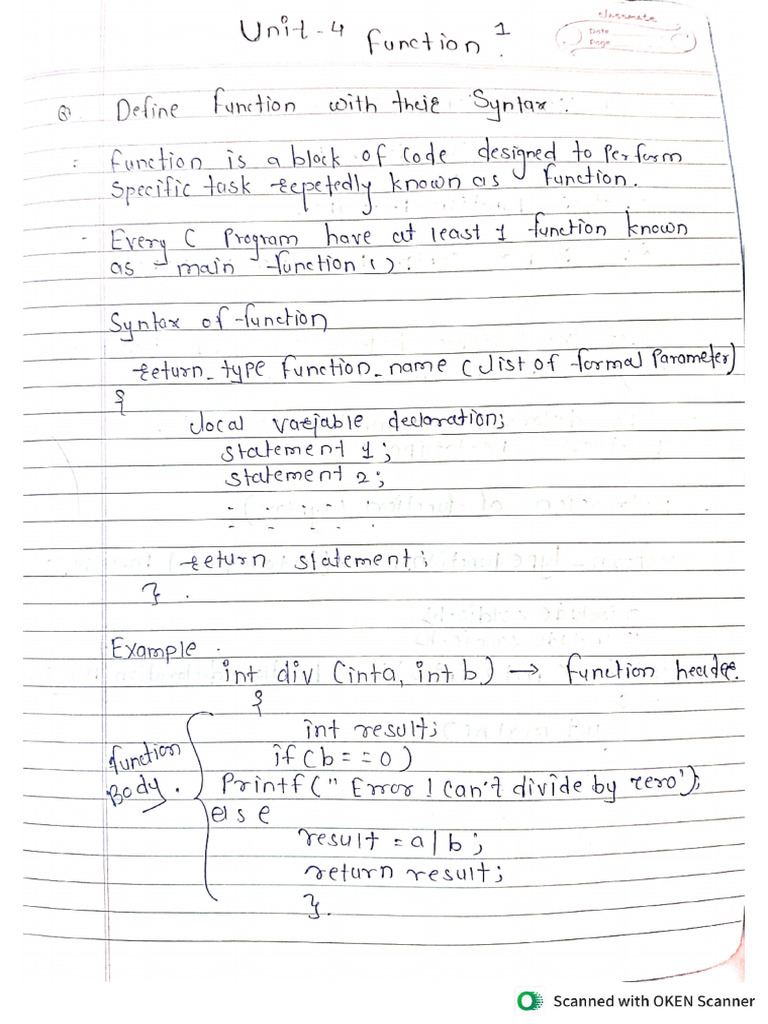 classmate
Date
Page
Unit-4 function 1
Q Define function with their Syntax:
: function is a block of code designed to Perform
specific task repetedly known as function.
- Every C Program have at least 1 function known
as main function ().
Syntax of function
return_type function_name (list of formal Parameter)
{
local variable declaration;
statement 1;
statement 2;
- - - - - -
- - - - - -
return statement;
}.
Example.
int div (int a, int b) → function header.
{
int result;
if (b == 0)
function
Body.
Printf (" Error ! Can't divide by zero");
else
result = a/b;
return result;
}.
Scanned with OKEN Scanner